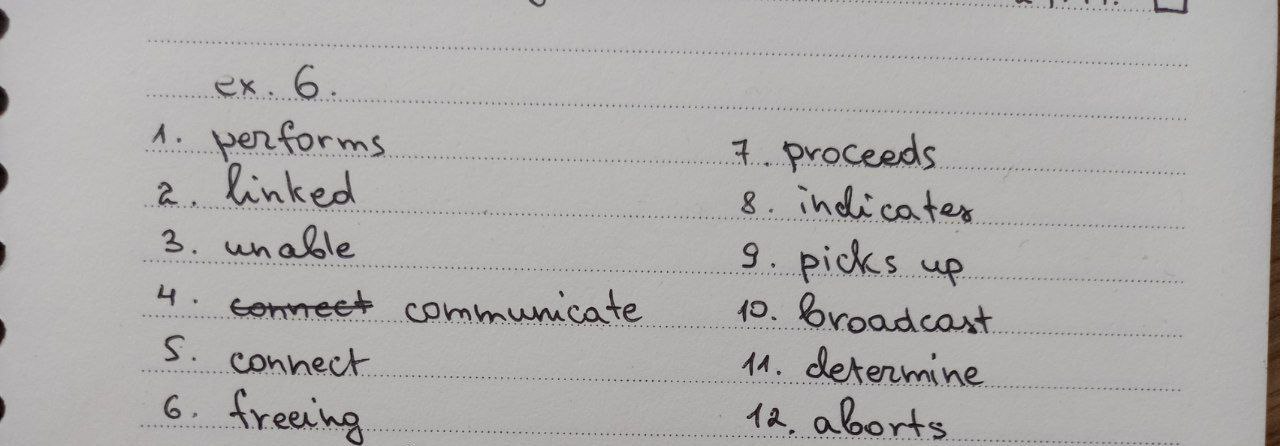 ex. 6.
1. performs
2. linked
3. unable
4. ~~connect~~ communicate
5. connect
6. freeing
7. proceeds
8. indicates
9. picks up
10. broadcast
11. determine
12. aborts